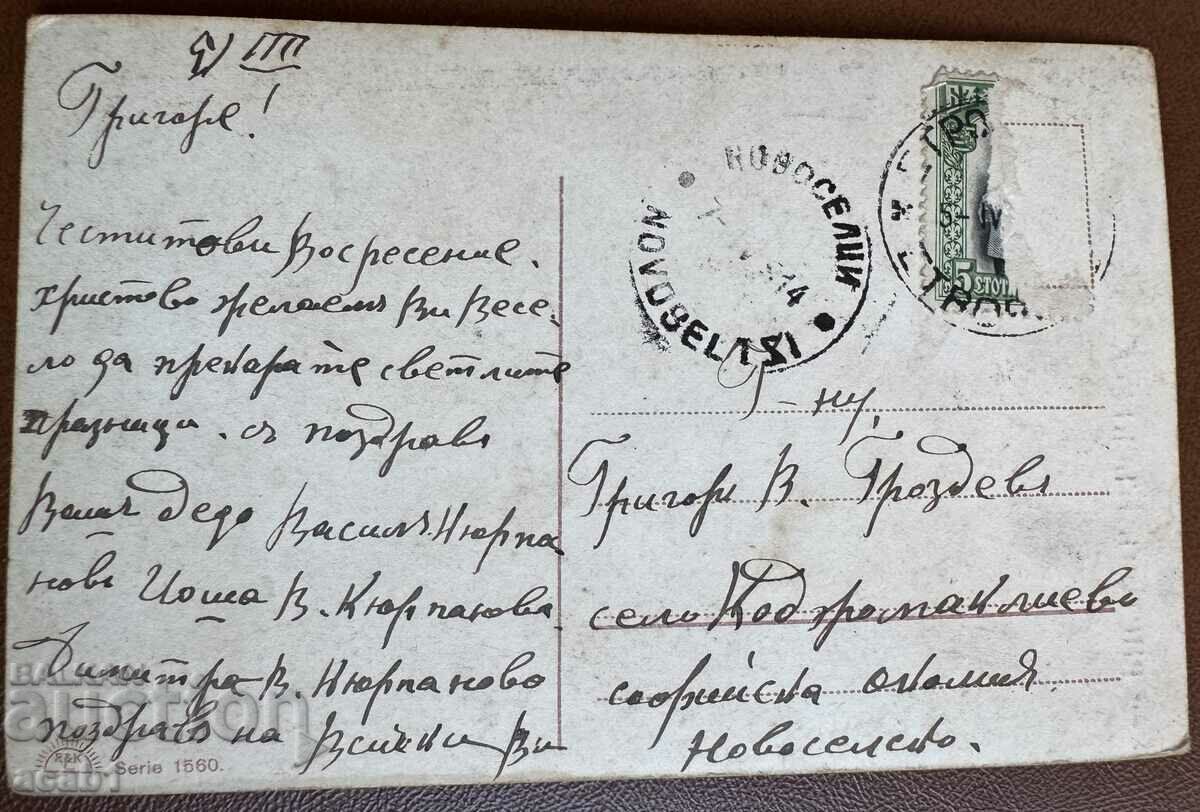 5/III
Григоре!
Честитови Восресение.
христово желаемъ Ви Весе-
ло да прекарате светлите
празници. съ поздравъ
Вашъ дедо Василъ Кюрпа
новъ Цоша В. Кюрпанова
Димитра В. Кюрпаново
поздравъ на Всички Ви
НОВОСЕЛЦИ
NOVOSELTZI
14
5-IV
5 СТОТ
Г-ну,
Григори В. Гроздевъ
село
софийска околия.
Новоселско.
R&K
Serie 1560.
BALKAN
auction
acab1